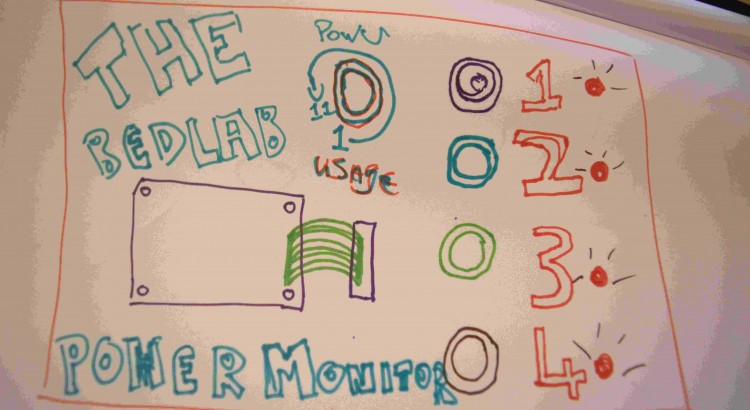 THE
BEDLAB
Power
11
1
USAGE
1
2
3
4
POWER MONITOR